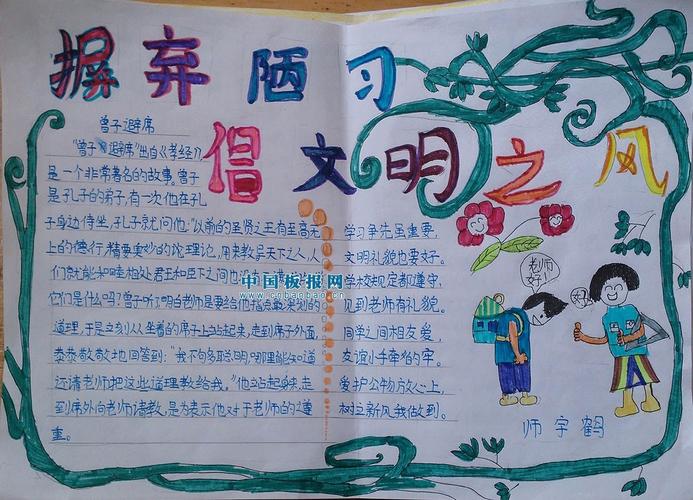 摒弃陋习
倡文明之风
曾子避席
"曾子避席"出自《孝经》,
是一个非常著名的故事。曾子
是孔子的弟子,有一次他在孔
子身边侍坐,孔子就问他:"以前的圣贤之王有至高无
上的德行,精要奥妙的论理论,用来教导天下之人,人
们就能和睦相处君王和臣下之间也没有
它们是什么吗?曾子听了明白老师是要给他指点最深刻的
道理,于是立刻从坐着的席子上站起来,走到席子外面,
恭恭敬敬地回答到:"我不够聪明,哪里能知道
还请老师把这些道理教给我。"他站起来,走
到席外向老师请教,是为表示他对于老师的尊
重。
学习争先虽重要,
文明礼貌也要好。
学校规定都遵守,
见到老师有礼貌。
同学之间相友爱,
友谊小手牵的牢。
爱护公物放心上,
树立新风我做到。
老师
好!
好!
师宇鹤
中国板报网
www.cnbanbao.cn